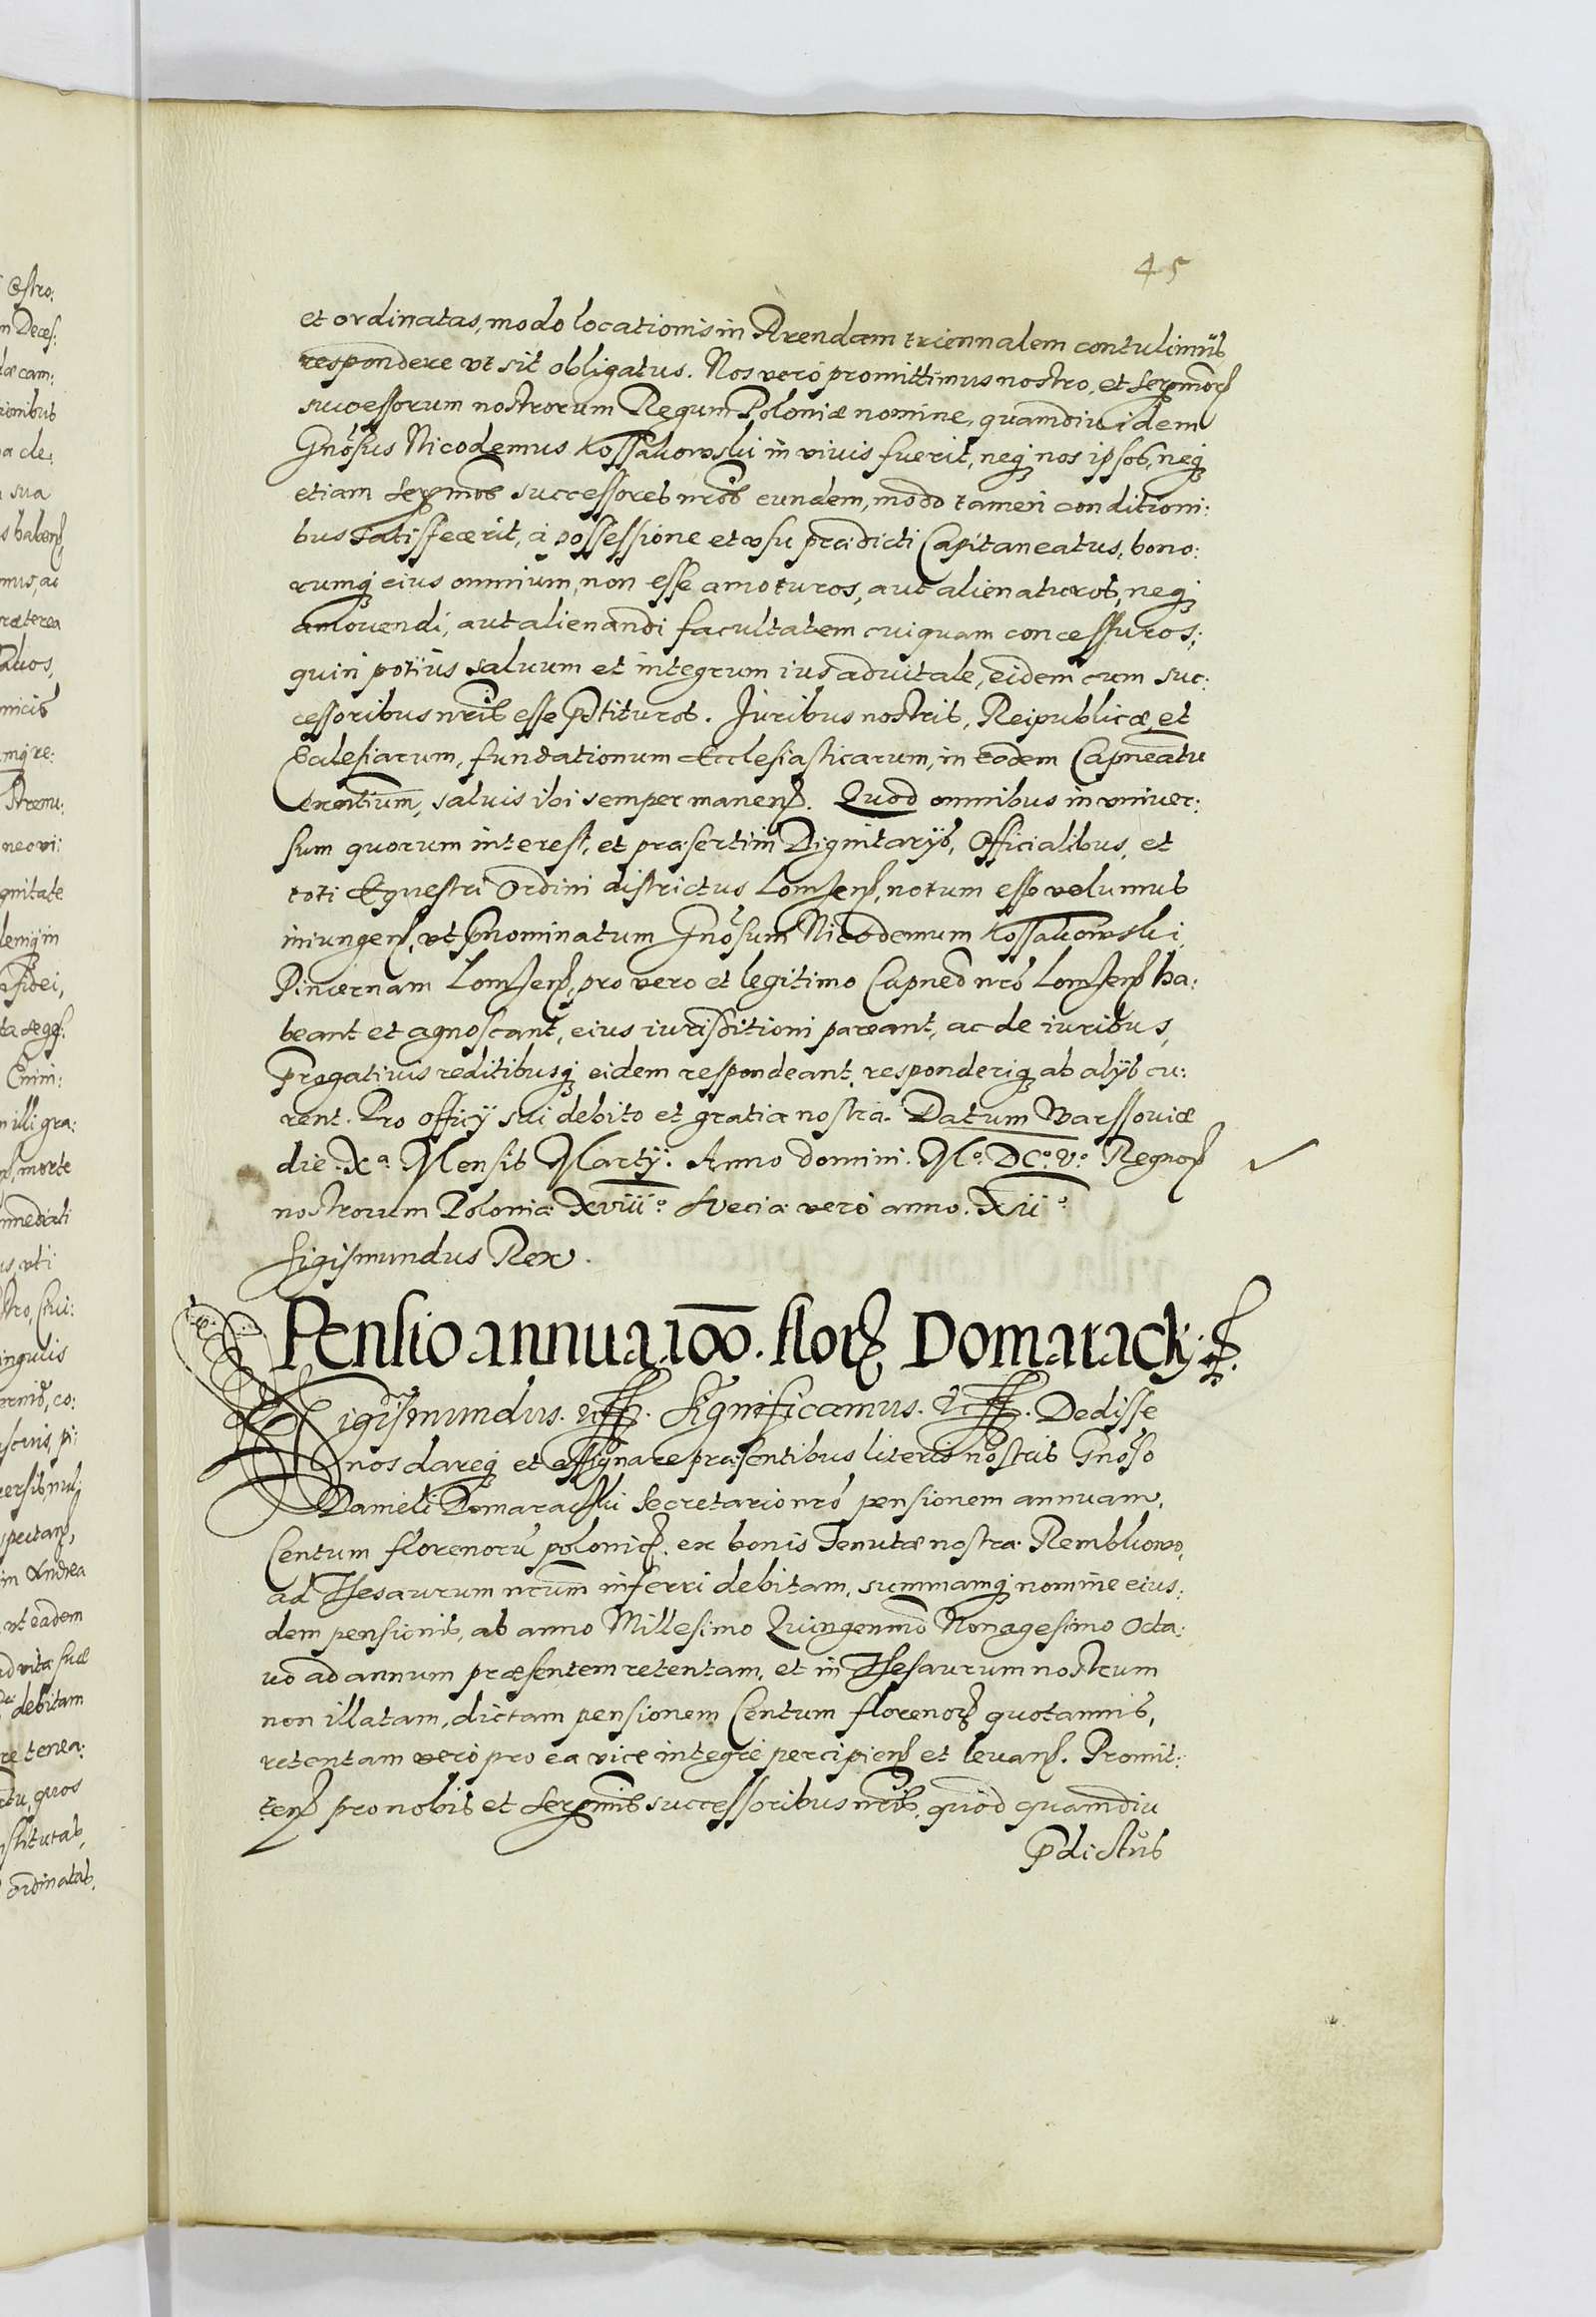 45
et ordinatas, modo locationis in Arendam triennalem contulimus,
respondere vt sit obligatus. Nos vero promittimus nostro, et Sermorũ
successorum nostrorum Regum Poloniæ nomine, quamdiu idem
Gnosus Nicodemus Kossakowski in viuis fuerit, neq3 nos ipsos, neq3
etiam Sermos successores nros eundem, modo tamen conditioni:
bus satisfecerit, à possessione et vsu prædicti Capitaneatus, bono:
rumq3 eius omnium, non esse amoturos, aut alienaturos, neq3
amouendi, aut alienandi facultatem cuiquam concessuros,:
quin potius saluum et integrum ius aduitale, eidem cum suc:
cessoribus nris esse ꝑtituros. Juribus nostris, Reipublicæ, et
Ecclesiarum, fundationum Ecclesiasticarum, in eodem Capneatu
exentium, saluis ibi semper manenꝭ. Quod omnibus in vniuer:
sum quorum interest, et præsertim Dignitarijs, Officialibus, et
toti Equestri Ordini districtus Lomzenꝭ, notum esse volumus
iniungenꝭ, vt ꝑnominatum Gnosum Nicodemum Kossakowski
Pincernam Lomzenꝭ, pro vero et legitimo Capneo nro Lomzenꝭ ha:
beant et agnoscant, eius iurisditioni pareant, ac de iuribus,
ꝑrogatiuis reditibusq3 eidem respondeant, responderiq3 ab alijs cu:
rent. Pro officij sui debito et gratia nostra. Datum Warssouiæ
die. Xa. Mensis Martij. Anno domini. Mo. DCo. Vo. Regnorꝭ
nostrorum Poloniæ XVIIIo. Sueciæ vero anno. XIIo
Sigismundus Rex.
Pensio annua 100. florꝭ Domaracki.
Sigismundus. etc. Significamus. etc. Dedisse
nos dareq3 et assignare præsentibus literis nostris Gnoso
Danieli Domaracki Secretario nro pensionem annuam,
Centum florenorũ polonicꝭ. ex bonis Tenutæ nostræ Rembkowo,
ad Thesaurum nrum inferri debitam, summamq3 nomine eius:
dem pensionis, ab anno Millesimo Quingenmo Nonagesimo Octa:
uo ad annum præsentem retentam, et in Thesaurum nostrum
non illatam, dictam pensionem Centum florenorꝭ quotannis,
retentam vero pro ea vice integre percipienꝭ et leuanꝭ. Promit:
tenꝭ pro nobis et Sermis successoribus nris, quod quamdiu
ꝑdictus